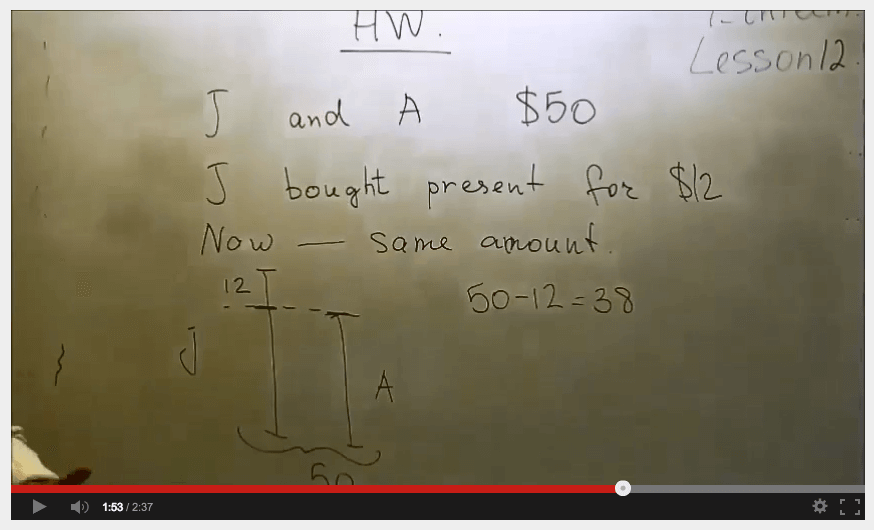 HW.
Lesson 12.
J and A $50
J bought present for $12
Now — same amount.
12
50-12=38
J
A
50
1:53 / 2:37